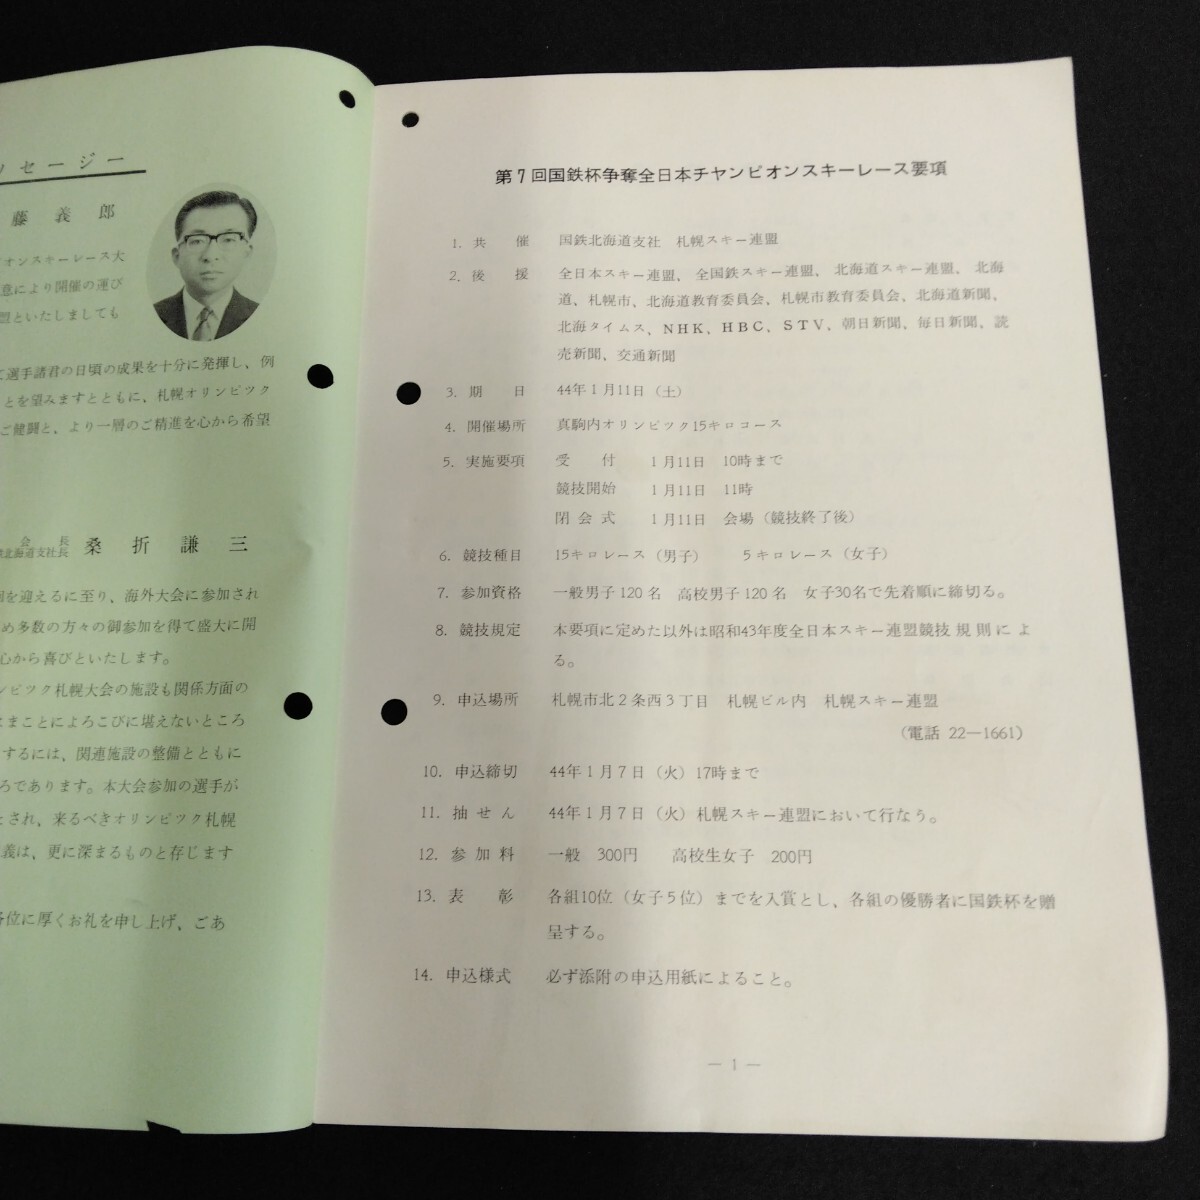 ッセージー
藤義郎
オンスキーレース大
意により開催の運び
盟といたしましても
て選手諸君の日頃の成果を十分に発揮し、例
とを望みますとともに、札幌オリンピツク
ご健闘と、より一層のご精進を心から希望
会長
北海道支社長 桑折謙三
回を迎えるに至り、海外大会に参加され
め多数の方々の御参加を得て盛大に開
心から喜びといたします。
ンピツク札幌大会の施設も関係方面の
はまことによろこびに堪えないところ
するには、関連施設の整備とともに
ろであります。本大会参加の選手が
とされ、来るべきオリンピツク札幌
義は、更に深まるものと存じます
各位に厚くお礼を申し上げ、ごあ
第7回国鉄杯争奪全日本チヤンピオンスキーレース要項
1. 共催 国鉄北海道支社 札幌スキー連盟
2. 後援 全日本スキー連盟、全国鉄スキー連盟、北海道スキー連盟、北海
道、札幌市、北海道教育委員会、札幌市教育委員会、北海道新聞、
北海タイムス、NHK、HBC、STV、朝日新聞、毎日新聞、読
売新聞、交通新聞
3. 期日 44年1月11日（土）
4. 開催場所 真駒内オリンピツク15キロコース
5. 実施要項 受付 1月11日 10時まで
競技開始 1月11日 11時
閉会式 1月11日 会場（競技終了後）
6. 競技種目 15キロレース（男子） 5キロレース（女子）
7. 参加資格 一般男子120名 高校男子120名 女子30名で先着順に締切る。
8. 競技規定 本要項に定めた以外は昭和43年度全日本スキー連盟競技規則によ
る。
9. 申込場所 札幌市北2条西3丁目 札幌ビル内 札幌スキー連盟
（電話 22―1661）
10. 申込締切 44年1月7日（火）17時まで
11. 抽せん 44年1月7日（火）札幌スキー連盟において行なう。
12. 参加料 一般 300円 高校生女子 200円
13. 表彰 各組10位（女子5位）までを入賞とし、各組の優勝者に国鉄杯を贈
呈する。
14. 申込様式 必ず添附の申込用紙によること。
― 1 ―